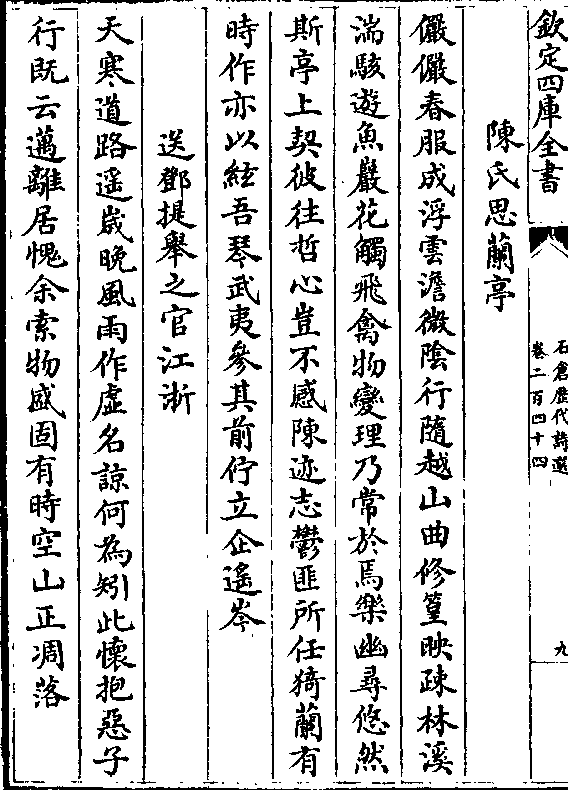 欽定四庫全書
石倉歷代詩選
卷二百四十四
九
陳氏思蘭亭
儼儼春服成浮雲澹微陰行隨越山曲修篁映疎林溪
湍駭遊魚巖花觸飛禽物變理乃常於焉樂幽尋悠然
斯亭上契彼往哲心豈不感陳迹志鬱匪所任猗蘭有
時作亦以絃吾琴武夷參其前佇立企遙岑
送鄧提舉之官江浙
天寒道路遥歲晚風雨作虛名諒何為矧此懷抱惡子
行既云邁離居愧余索物盛固有時空山正凋落